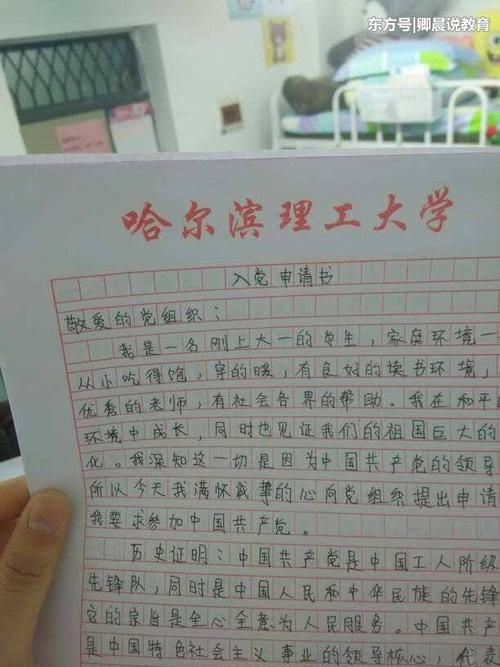 东方号|卿晨说教育
哈尔滨理工大学
入党申请书
敬爱的党组织：
我是一名刚上大一的学生，家庭环境一
从小吃得饱，穿的暖，有良好的读书环境，
优秀的老师，有社会各界的帮助。我在和平
环境中成长，同时也见证我们的祖国巨大的
化。我深知这一切是因为中国共产党的领导
所以今天我满怀诚挚的心向党组织提出申请
我要求参加中国共产党。
历史证明：中国共产党是中国工人阶级
先锋队，同时是中国人民和中华民族的先锋
它的宗旨是全心全意为人民服务。中国共产
是中国特色社会主义事业的领导核心，代表